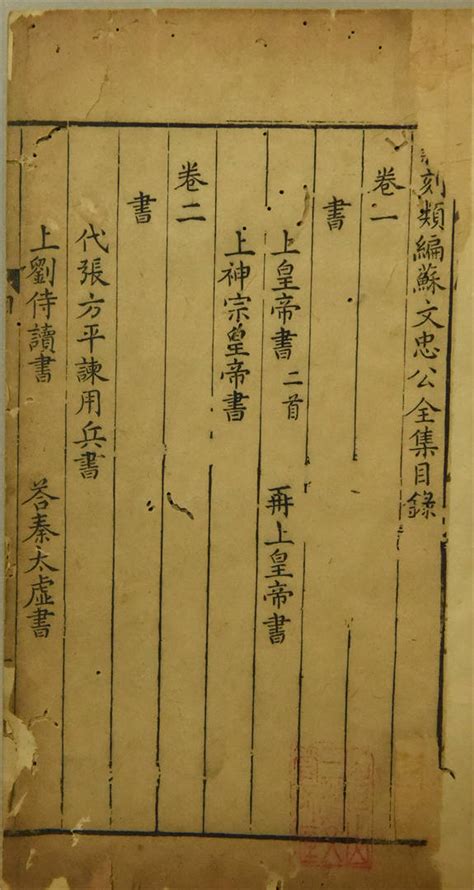 刻類編蘇文忠公全集目錄
卷一
書
上皇帝書 二首 再上皇帝書
上神宗皇帝書
卷二
書
代張方平諫用兵書
上劉侍讀書 荅秦太虛書